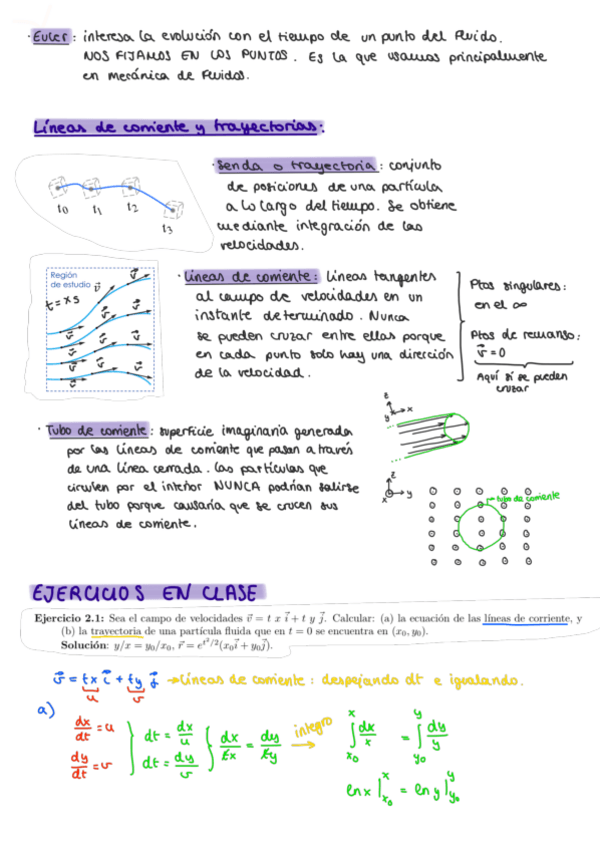 · Euler: interesa la evolución con el tiempo de un punto del fluido.
NOS FIJAMOS EN LOS PUNTOS. Es la que usamos principalmente
en mecánica de fluidos.
Líneas de corriente y trayectorias:
· Senda o trayectoria: conjunto
de posiciones de una partícula
a lo largo del tiempo. Se obtiene
mediante integración de las
velocidades.
t₀ t₁ t₂ t₃
Región
de estudio
t = x s
v⃗ v⃗ v⃗ v⃗ v⃗ v⃗ v⃗ v⃗ v⃗ v⃗
· Líneas de corriente: Líneas tangentes
al campo de velocidades en un
instante determinado. Nunca
se pueden cruzar entre ellas porque
en cada punto solo hay una dirección
de la velocidad.
Ptos singulares:
en el ∞
Ptos de remanso:
v⃗ = 0
Aquí sí se pueden
cruzar
· Tubo de corriente: superficie imaginaria generada
por las líneas de corriente que pasan a través
de una línea cerrada. Las partículas que
circulen por el interior NUNCA podrían salirse
del tubo porque causaría que se crucen sus
líneas de corriente.
z
y x
z
x y
tubo de corriente
EJERCICIOS EN CLASE
Ejercicio 2.1: Sea el campo de velocidades v⃗ = t x i⃗ + t y j⃗. Calcular: (a) la ecuación de las líneas de corriente, y
(b) la trayectoria de una partícula fluida que en t = 0 se encuentra en (x₀, y₀).
Solución: y/x = y₀/x₀, r⃗ = e^{t²/2}(x₀i⃗ + y₀j⃗).
v⃗ = tx i⃗ + ty j⃗ → Líneas de corriente: despejando dt e igualando.
u v
a)
dx/dt = u } dt = dx/u } dx/tx = dy/ty integro → ∫_{x₀}^{x} dx/x = ∫_{y₀}^{y} dy/y
dy/dt = v dt = dy/v
ln x |_{x₀}^{x} = ln y |_{y₀}^{y}